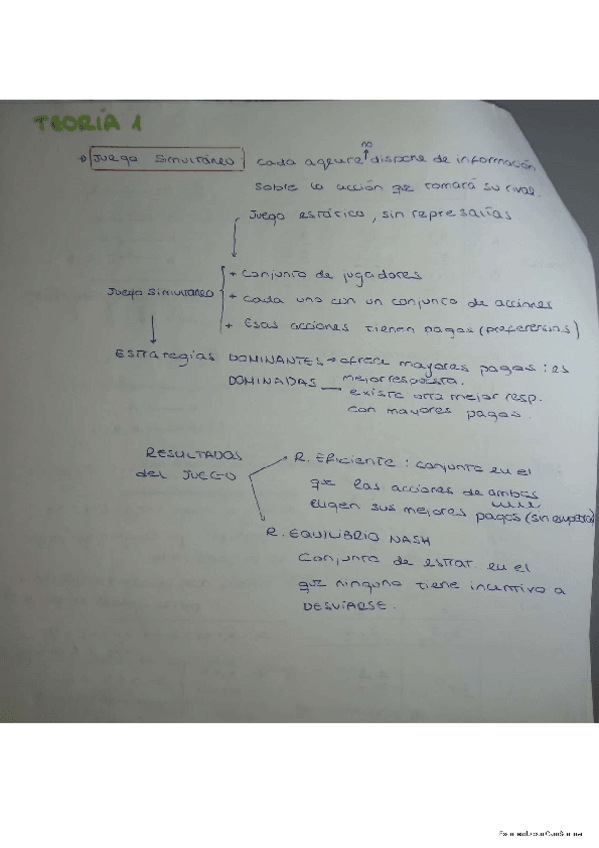 TEORÍA 1
Juego Simultáneo cada agente no dispone de información
sobre la acción que tomará su rival.
Juego estático, sin represalias.
+ Conjunto de jugadores
Juego Simultáneo + Cada uno con un conjunto de acciones
+ Esas acciones tienen pagos (preferencias)
Estrategias DOMINANTES → ofrece mayores pagos : es
mejor respuesta.
DOMINADAS existe otra mejor resp.
con mayores pagos.
RESULTADOS
del JUEGO
R. Eficiente : conjunto en el
que las acciones de ambos
eligen sus mejores pagos (sin
R. EQUILIBRIO NASH
Conjunto de estrat. en el
que ninguno tiene incentivo a
DESVIARSE.